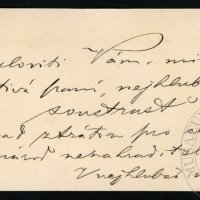 Vám, mi
tivá paní, nejhlub
soustrast
ad ztrátou pro
národ nenahradit
V nejhlubší